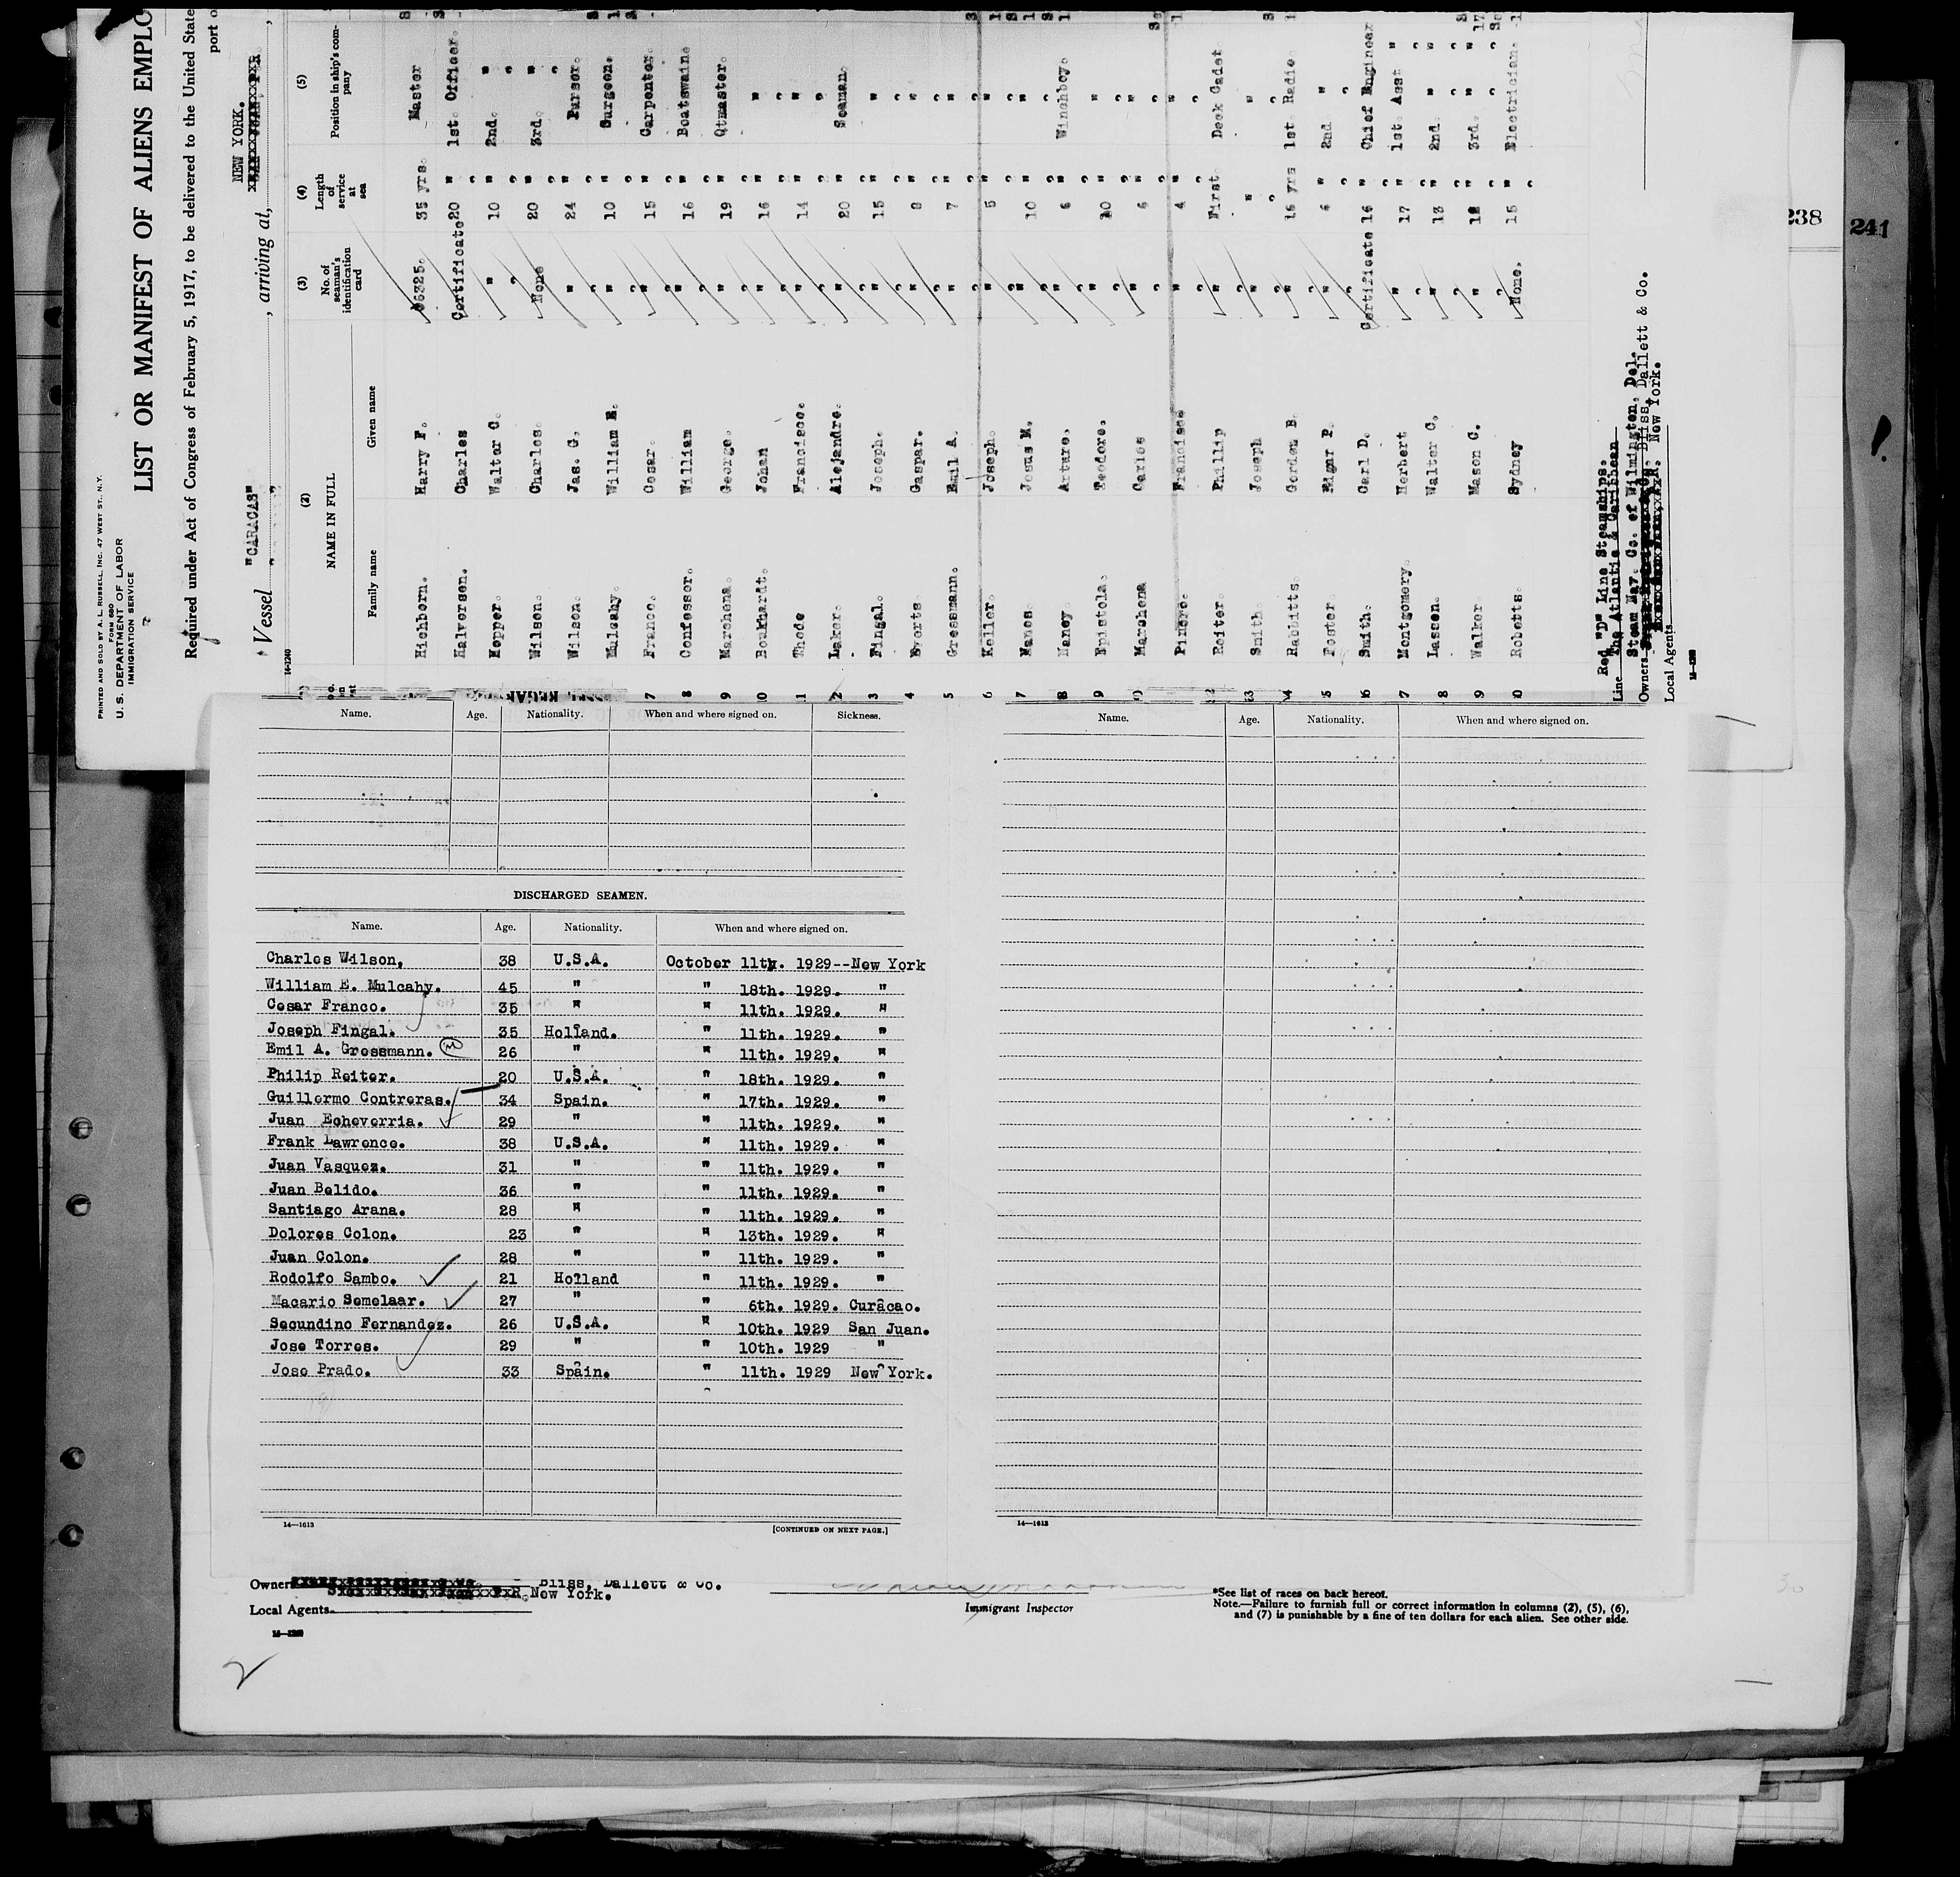 PRINTED AND SOLD BY A. L. RUSSELL, INC. 47 WEST ST., N.Y.
U. S. DEPARTMENT OF LABOR
FORM 680
IMMIGRATION SERVICE
LIST OR MANIFEST OF ALIENS EMPLO
Required under Act of Congress of February 5, 1917, to be delivered to the United State
port o
NEW YORK.
Vessel "CARACAS", arriving at,
14-1240
(2) (3) (4) (5)
NAME IN FULL No. of seaman's identification card Length of service at sea Position in ship's company
Family name Given name
Hichborn. Harry F. 35 yrs. Master
Halvorsen. Charles Certificate 20 " 1st. Officer.
Walter C. " 10 " 2nd. "
Wilson. Charles. None 20 " 3rd. "
Wilson. Jas. G. " 24 " Purser.
Mulcahy. William E. " 10 " Surgeon.
7 Franco. Cesar. " 15 " Carpenter.
8 Confessor. William " 16 " Boatswain
9 Marchena. George. " 19 " Qtmaster.
10 Johan " 16 " "
11 Thode Francisco. " 14 " "
2 Laker. Alejandro. " 20 " Seaman.
3 Fingal. Joseph. " 15 " "
4 Everts. Gaspar. " 8 " "
5 Gressmann. Emil A. " 7 " "
6 Keller. Joseph. " 5 " "
7 Jesus M. " 10 " "
8 Arturo. " 6 " Winchboy.
9 Epistola. Teodoro. " 10 " "
Marchena Carlos " 6 " "
Pinero. Francisco " 4 " "
12 Reiter. Phillip " First Deck Cadet.
13 Smith. Joseph " " "
14 Rabbitts. Gordon B. " 16 yrs 1st. Radio.
15 Foster. Edgar P. " 6 " 2nd. "
16 Smith. Carl D. Certificate 16 " Chief Engineer
17 Montgomery. Herbert " 17 " 1st. Asst "
18 Lassen. Walter C. " 13 " 2nd. " "
19 Walker. Mason C. " 12 " 3rd. " "
20 Roberts. Sydney None. 15 " Electrician.
Red "D" Line Steamships.
Line The Atlantic & Caribbean
Steam Nav. Co. of Wilmington, Del.
Owners Bliss, Dallett & Co.
New York.
Local Agents
238
241
Name. Age. Nationality. When and where signed on. Sickness.
Name. Age. Nationality. When and where signed on.
DISCHARGED SEAMEN.
Name. Age. Nationality. When and where signed on.
Charles Wilson, 38 U.S.A. October 11th. 1929--New York
William E. Mulcahy. 45 " " 18th. 1929. "
Cesar Franco. 35 " " 11th. 1929. "
Joseph Fingal. 35 Holland. " 11th. 1929. "
Emil A. Gressmann. 26 " " 11th. 1929. "
Philip Reiter. 20 U.S.A. " 18th. 1929. "
Guillermo Contreras. 34 Spain. " 17th. 1929. "
Juan Echeverria. 29 " " 11th. 1929. "
Frank Lawrence. 38 U.S.A. " 11th. 1929. "
Juan Vasquez. 31 " " 11th. 1929. "
Juan Belido. 36 " " 11th. 1929. "
Santiago Arana. 28 " " 11th. 1929. "
Dolores Colon. 23 " " 13th. 1929. "
Juan Colon. 28 " " 11th. 1929. "
Rodolfo Sambo. 21 Holland " 11th. 1929. "
Macario Semelaar. 27 " " 6th. 1929. Curacao.
Secundino Fernandez. 26 U.S.A. " 10th. 1929 San Juan.
Jose Torres. 29 " " 10th. 1929 "
Jose Prado. 33 Spain. " 11th. 1929 New York.
14—1613
[CONTINUED ON NEXT PAGE.]
14—1613
Owners Bliss, Dallett & Co.
New York.
Local Agents
Immigrant Inspector
*See list of races on back hereof.
Note.—Failure to furnish full or correct information in columns (2), (5), (6),
and (7) is punishable by a fine of ten dollars for each alien. See other side.
2